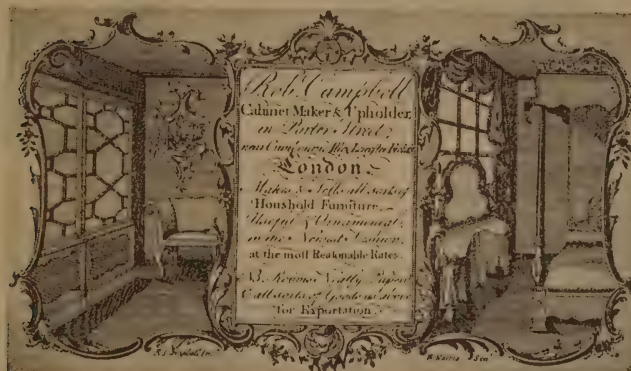 Rob.t Campbell
Cabinet Maker & Upholder,
in Porter Street,
near
London.
Makes & Sells all sorts of
Houshold Furniture
Useful & Ornamental,
in the Newest Fashion,
at the most Reasonable Rates.
N.B. Rooms Neatly Paper'd
& all sorts of Goods
for Exportation.